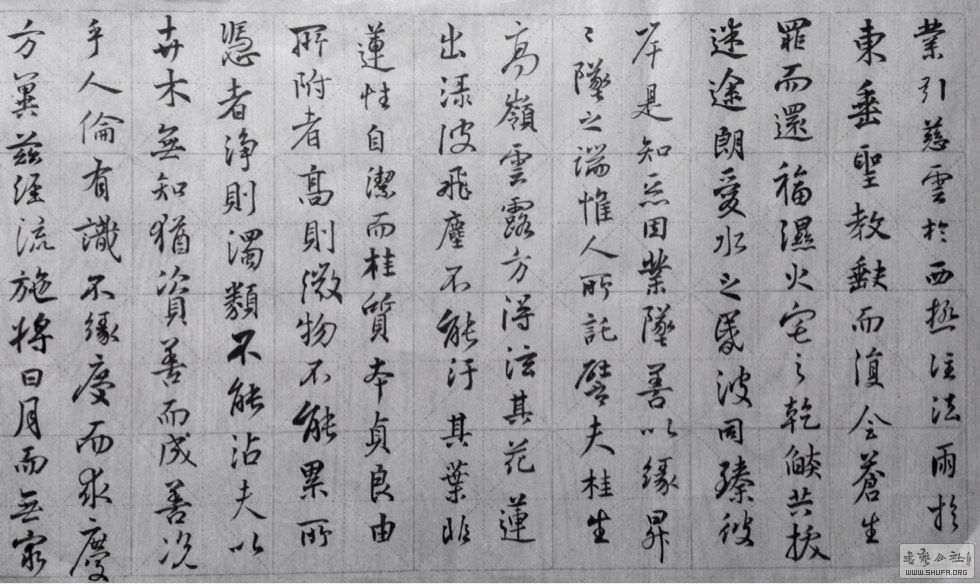 業引慈雲於西極注法雨於
東垂聖教缺而復全蒼生
罪而還福濕火宅之乾燄共拔
迷途朗愛水之昏波同臻彼
岸是知惡因業墜善以緣昇
〻墜之端惟人所託譬夫桂生
高嶺雲露方得泫其花蓮
出淥波飛塵不能汙其葉非
蓮性自潔而桂質本貞良由
所附者高則微物不能累所
憑者淨則濁類不能沾夫以
卉木無知猶資善而成善況
乎人倫有識不緣慶而求慶
方冀茲經流施將日月而無窮
書法公社
WWW.SHUFA.ORG